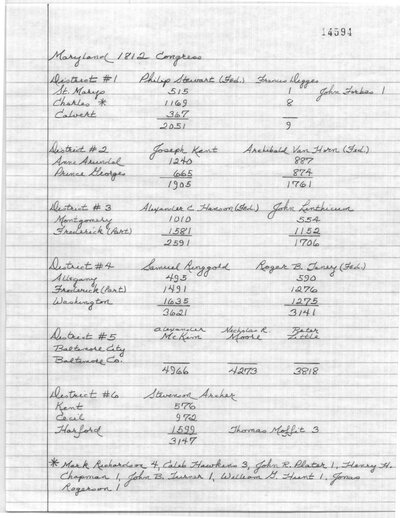 14594
Maryland 1812 Congress
District #1 Philip Stewart (Fed.) Francis Digges
St. Marys 515 1 John Forbes 1
Charles * 1169 8
Calvert 367
2051 9
District #2 Joseph Kent Archibald Van Horn (Fed.)
Anne Arundel 1240 887
Prince Georges 665 874
1905 1761
District #3 Alexander C. Hanson (Fed.) John Linthicum
Montgomery 1010 554
Frederick (Part) 1581 1152
2591 1706
District #4 Samuel Ringgold Roger B. Taney (Fed.)
Allegany 495 590
Frederick (Part) 1491 1276
Washington 1635 1275
3621 3141
District #5 Alexander McKim Nicholas R. Moore Peter Little
Baltimore City
Baltimore Co.
4966 4273 3818
District #6 Stevenson Archer
Kent 576
Cecil 972
Harford 1599 Thomas Moffit 3
3147
* Mark Richardson 4, Caleb Hawkins 3, John R. Plater 1, Henry H.
Chapman 1, John B. Turner 1, William G. Hunt 1, Jonas
Rogerson 1